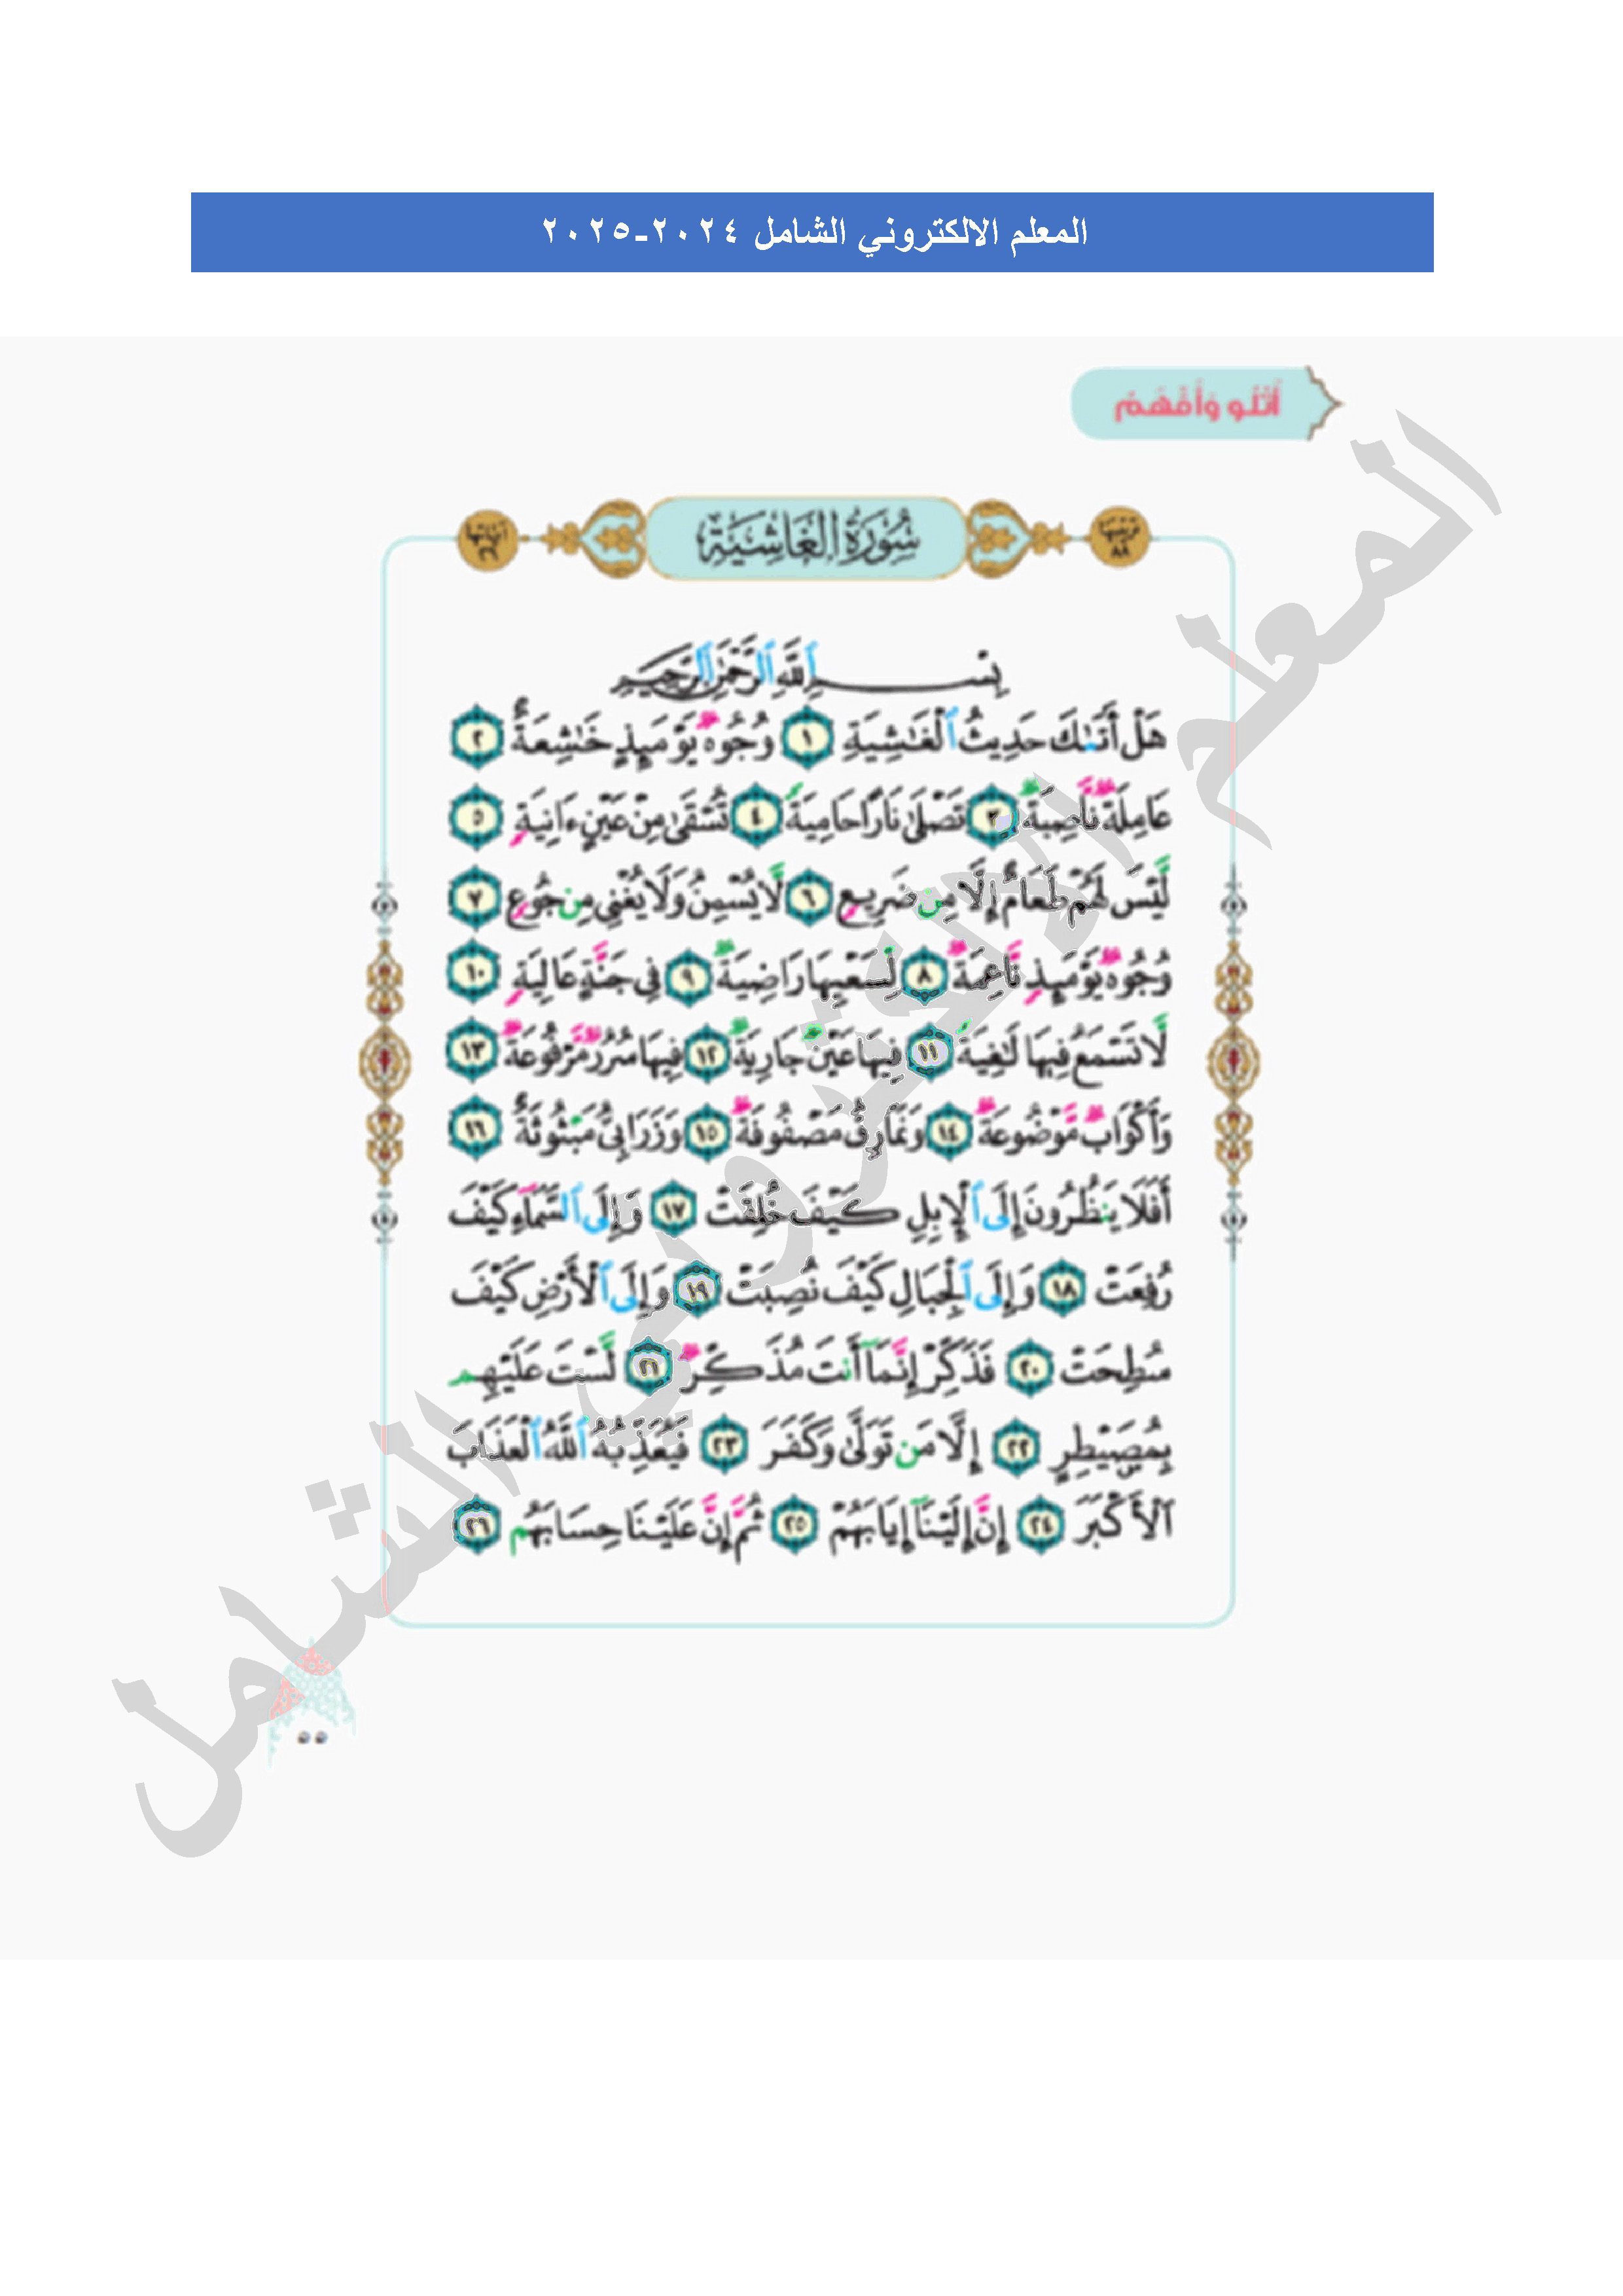 المعلم الالكتروني الشامل ٢٠٢٤-٢٠٢٥
أَتْلُو وَأَفْهَمُ
ترتيبها ٨٨
سُورَةُ الغَاشِيَةِ
آياتها ٢٦
بِسْمِ ٱللَّهِ ٱلرَّحْمَٰنِ ٱلرَّحِيمِ
هَلْ أَتَىٰكَ حَدِيثُ ٱلْغَٰشِيَةِ ١ وُجُوهٌ يَوْمَئِذٍ خَٰشِعَةٌ ٢
عَامِلَةٌ نَّاصِبَةٌ ٣ تَصْلَىٰ نَارًا حَامِيَةً ٤ تُسْقَىٰ مِنْ عَيْنٍ ءَانِيَةٍ ٥
لَّيْسَ لَهُمْ طَعَامٌ إِلَّا مِن ضَرِيعٍ ٦ لَّا يُسْمِنُ وَلَا يُغْنِي مِن جُوعٍ ٧
وُجُوهٌ يَوْمَئِذٍ نَّاعِمَةٌ ٨ لِّسَعْيِهَا رَاضِيَةٌ ٩ فِي جَنَّةٍ عَالِيَةٍ ١٠
لَّا تَسْمَعُ فِيهَا لَٰغِيَةً ١١ فِيهَا عَيْنٌ جَارِيَةٌ ١٢ فِيهَا سُرُرٌ مَّرْفُوعَةٌ ١٣
وَأَكْوَابٌ مَّوْضُوعَةٌ ١٤ وَنَمَارِقُ مَصْفُوفَةٌ ١٥ وَزَرَابِيُّ مَبْثُوثَةٌ ١٦
أَفَلَا يَنظُرُونَ إِلَى ٱلْإِبِلِ كَيْفَ خُلِقَتْ ١٧ وَإِلَى ٱلسَّمَآءِ كَيْفَ
رُفِعَتْ ١٨ وَإِلَى ٱلْجِبَالِ كَيْفَ نُصِبَتْ ١٩ وَإِلَى ٱلْأَرْضِ كَيْفَ
سُطِحَتْ ٢٠ فَذَكِّرْ إِنَّمَآ أَنتَ مُذَكِّرٌ ٢١ لَّسْتَ عَلَيْهِم
بِمُصَيْطِرٍ ٢٢ إِلَّا مَن تَوَلَّىٰ وَكَفَرَ ٢٣ فَيُعَذِّبُهُ ٱللَّهُ ٱلْعَذَابَ
ٱلْأَكْبَرَ ٢٤ إِنَّ إِلَيْنَآ إِيَابَهُمْ ٢٥ ثُمَّ إِنَّ عَلَيْنَا حِسَابَهُم ٢٦
٥٥
المعلم الالكتروني الشامل